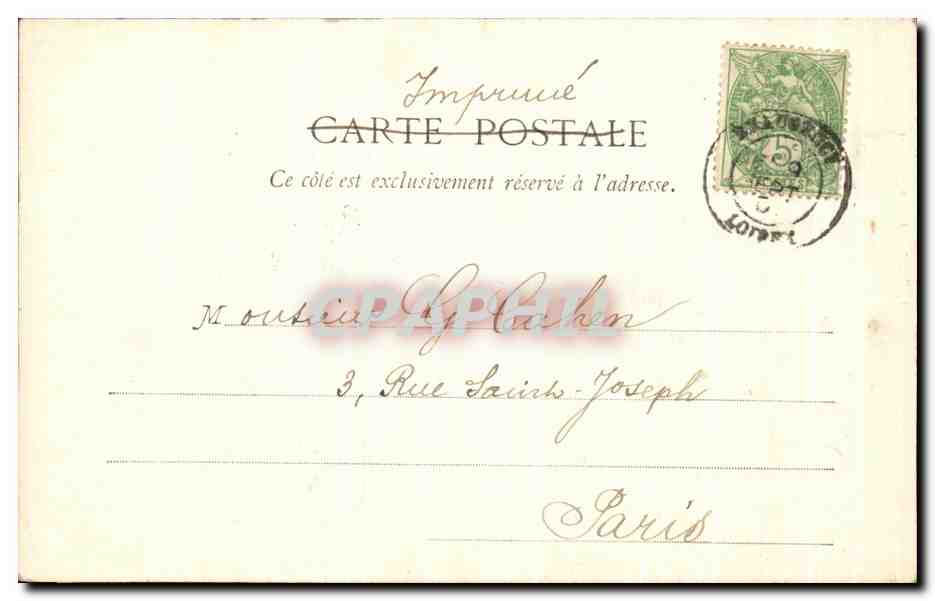 Imprimé
CARTE POSTALE
Ce côté est exclusivement réservé à l'adresse.
Monsieur Cahen
3, Rue Saint-Joseph
Paris
5
BEAUGENCY
SEPT
LOIRET
CPAPHIL